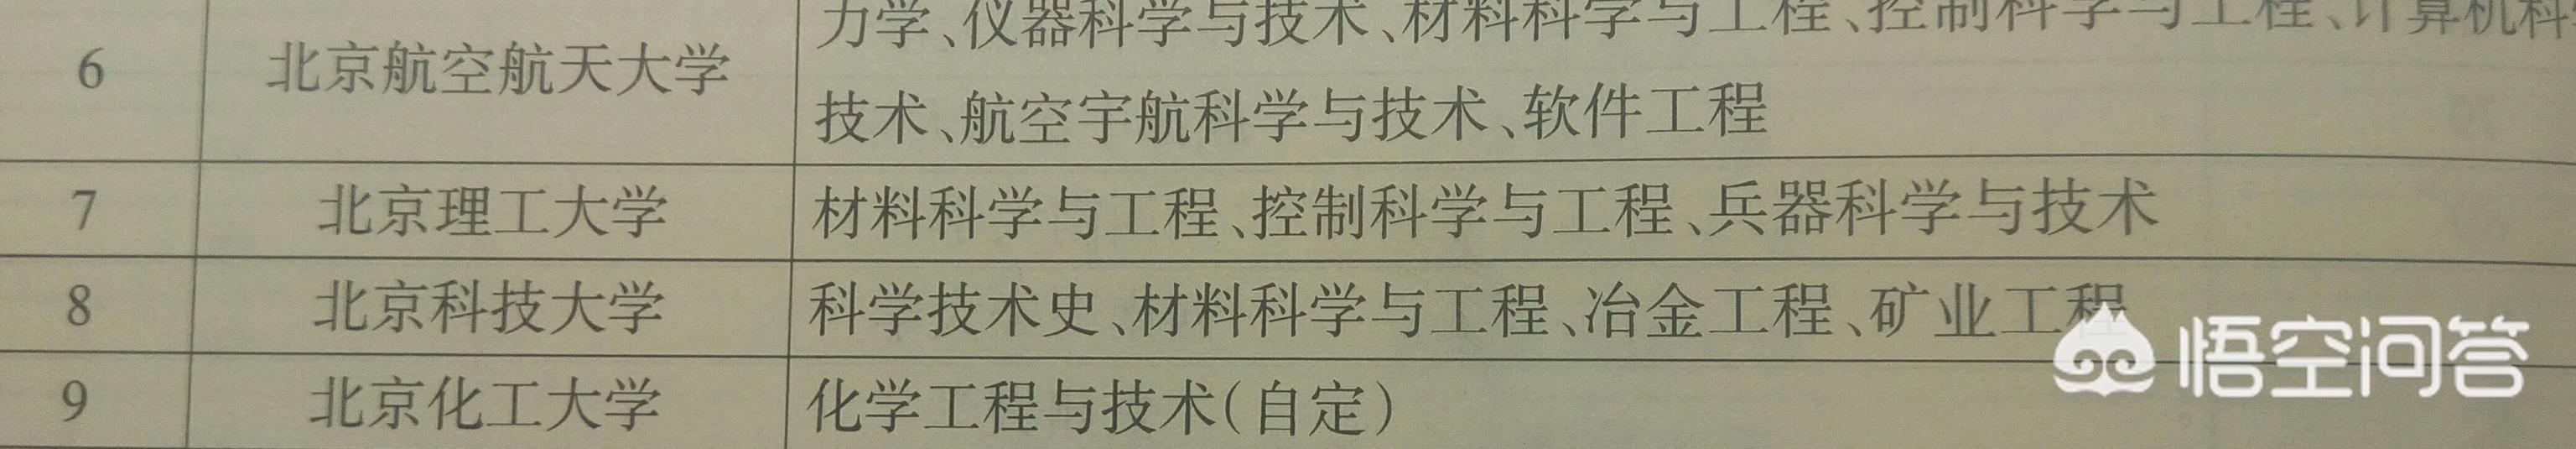 力学、仪器科学与技术、材料科学与工程、控制科学与工程、计算机科
6 北京航空航天大学
技术、航空宇航科学与技术、软件工程
7 北京理工大学 材料科学与工程、控制科学与工程、兵器科学与技术
8 北京科技大学 科学技术史、材料科学与工程、冶金工程、矿业工程
9 北京化工大学 化学工程与技术(自定)
悟空问答